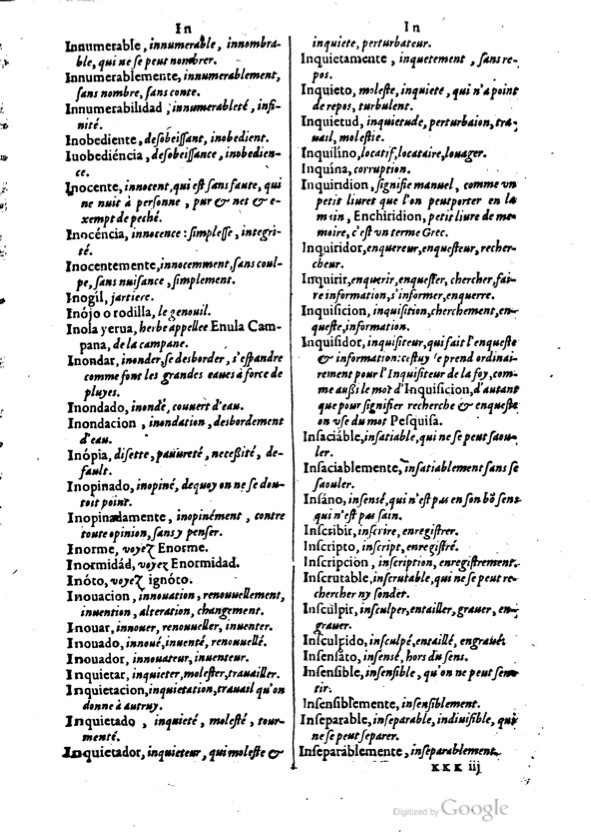 In
Innumerable, innumerable, innombra-
ble, qui ne se peut nombrer.
Innumerablemente, innumerablement,
sans nombre, sans conte.
Innumerabilidad, innumerableté, infi-
nité.
Inobediente, desobeissant, inobedient.
Iuobediéncia, desobeissance, inobedien-
ce.
Inocente, innocent, qui est sans faute, qui
ne nuit à personne, pur & net & e-
xempt de peché.
Inocéncia, innocence: simplesse, integri-
té.
Inocentemente, innocemment, sans coul-
pe, sans nuisance, simplement.
Inogíl, jartiere.
Inójo o rodilla, le genouil.
Inola yerua, herbe appellee Enula Cam-
pana, de la campane.
Inondar, inonder, se desborder, s'espandre
comme font les grandes eaues à force de
pluyes.
Inondado, inondé, couuert d'eau.
Inondacion, inondation, desbordement
d'eau.
Inópia, disette, pauureté, necessité, de-
fault.
Inopinado, inopiné, dequoy on ne se dou-
toit point.
Inopinadamente, inopinément, contre
toute opinion, sans y penser.
Inorme, voyez Enorme.
Inormidád, voyez Enormidad.
Inóto, voyez ignóto.
Inouacion, innouation, renouuellement,
inuention, alteration, changement.
Inouar, innouer, renouueller, inuenter.
Inouado, innoué, inuenté, renouuellé.
Inouador, innouateur, inuenteur.
Inquietar, inquieter, molester, trauailler.
Inquietacion, inquietation, trauail qu'on
donne à autruy.
Inquietado, inquieté, molesté, tour-
menté.
Inquietador, inquieteur, qui moleste &
In
inquiete, perturbateur.
Inquietamente, inquetement, sans re-
pos.
Inquieto, moleste, inquiete, qui n'a point
de repos, turbulent.
Inquietud, inquietude, perturbaion, tra-
uail, molestie.
Inquilíno, locatif, locataire, louager.
Inquína, corruption.
Inquiridion, signifie manuel, comme un
petit liuret que l'on peut porter en la
main, Enchiridion, petit liure de me-
moire, c'est un terme Grec.
Inquiridor, enquereur, enquesteur, recher-
cheur.
Inquirir, enquerir, enquester, chercher, fai-
re information, s'informer, enquerre.
Inquisicion, inquisition, cherchement, en-
queste, information.
Inquisidor, inquisiteur, qui fait l'enqueste
& information: cestuy se prend ordinai-
rement pour l'Inquisiteur de la foy, com-
me aussi le mot d'Inquisicion, d'autant
que pour signifier recherche & enqueste
on use du mot Pesquisa.
Insaciáble, insatiable, qui ne se peut saou-
ler.
Insaciablemente, insatiablement sans se
saouler.
Insáno, insensé, qui n'est pas en son bõ sens
qui n'est pas sain.
Inscribir, inscrire, enregistrer.
Inscripto, inscript, enregistré.
Inscripcion, inscription, enregistrement.
Inscrutable, inscrutable, qui ne se peut re-
chercher ny sonder.
Insculpir, insculper, entailler, grauer, en-
grauer.
Insculpido, insculpé, entaillé, engraué.
Insensáto, insensé, hors du sens.
Insensible, insensible, qu'on ne peut sen-
tir.
Insensiblemente, insensiblement.
Inseparable, inseparable, indiuisible, qui
ne se peut separer.
Inseparáblemente, inseparablement.
XXX iij
Digitized by Google